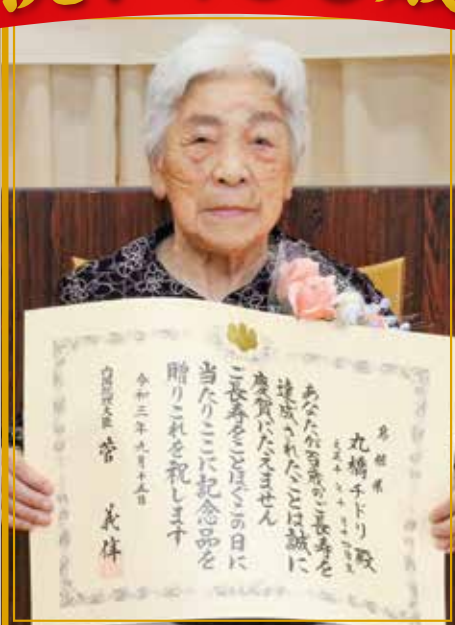 丸橋チドリ殿
あなたが百歳のご長寿を
達成されたことは誠に
慶賀にたえません
ご長寿をことほぐこの日に
当たりここに記念品を
贈りこれを祝します
令和三年九月十五日
内閣総理大臣 菅 義偉